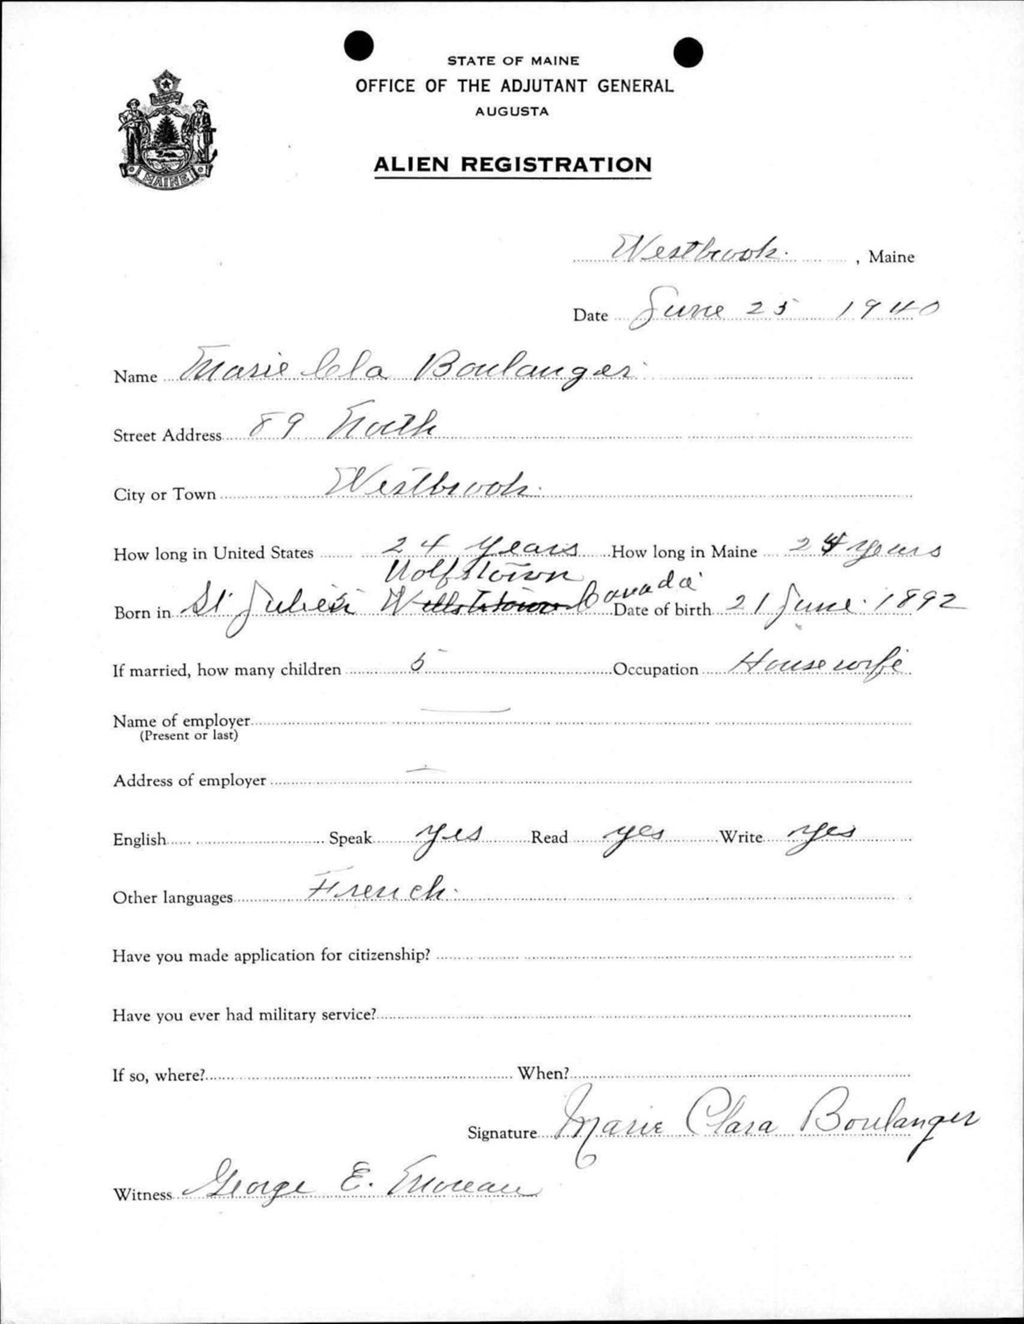 STATE OF MAINE
OFFICE OF THE ADJUTANT GENERAL
AUGUSTA
ALIEN REGISTRATION
MAINE
Westbrook. , Maine
Date June 25 1940
Name Marie Cla Boulanger
Street Address 89 North
City or Town Westbrook.
How long in United States 24 years How long in Maine 24 years
Wolfstown
Born in St Julien Canada Date of birth 21 June. 1892
If married, how many children 5 Occupation Housewife
Name of employer —
(Present or last)
Address of employer —
English Speak yes Read yes Write yes
Other languages French.
Have you made application for citizenship?
Have you ever had military service?
If so, where? When?
Signature Marie Clara Boulanger
Witness George E. Moreau